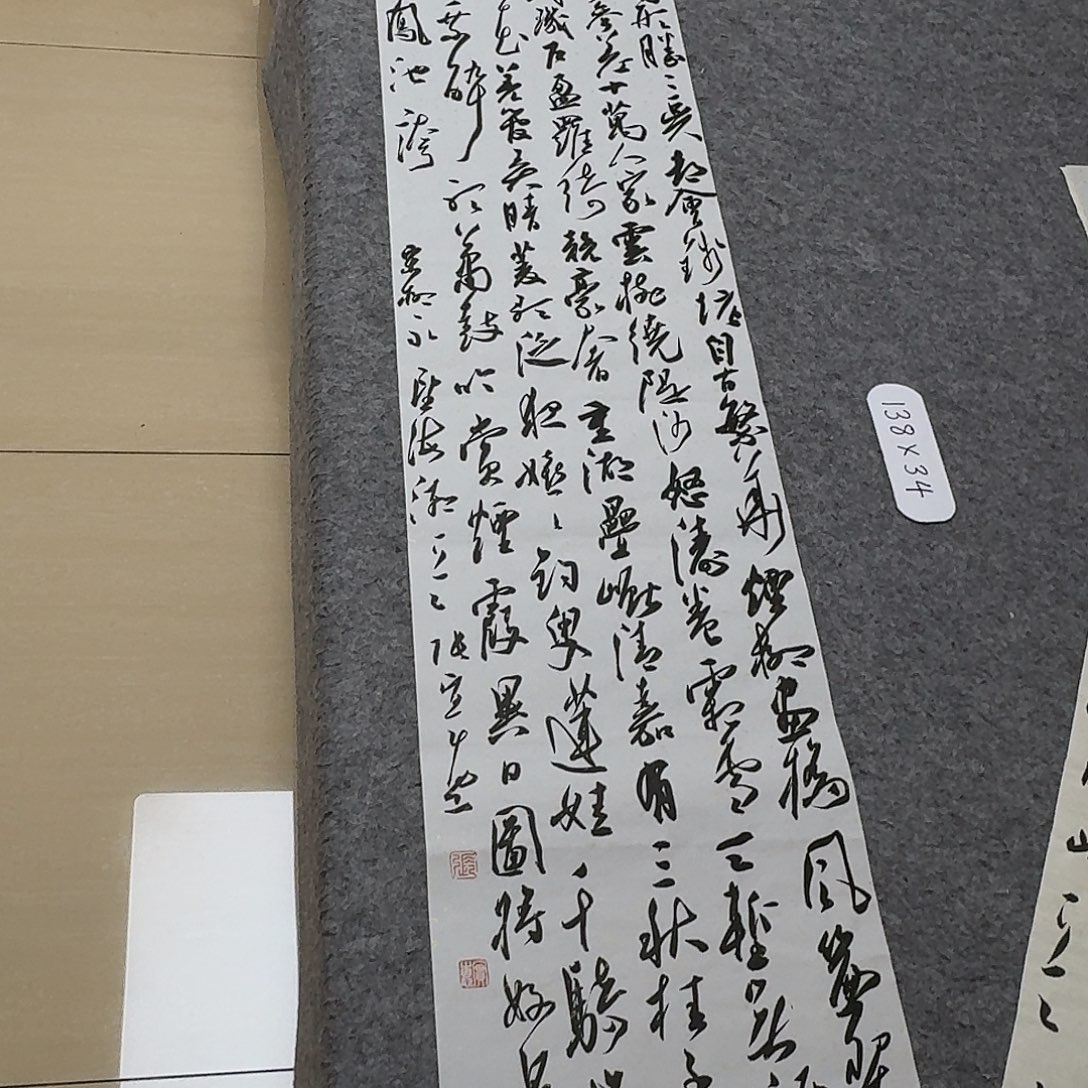 形勝三吳都會錢塘自古繁華煙柳畫橋風簾翠
參差十萬人家雲樹繞隄沙怒濤卷霜雪天塹無涯
璣戶盈羅綺競豪奢重湖疊巘清嘉有三秋桂子
羌管弄晴菱歌泛夜嬉嬉釣叟蓮娃千騎擁
乘醉聽簫鼓吟賞煙霞異日圖將好
鳳池誇
宋柳永望海潮一首 張宣
張
138×34